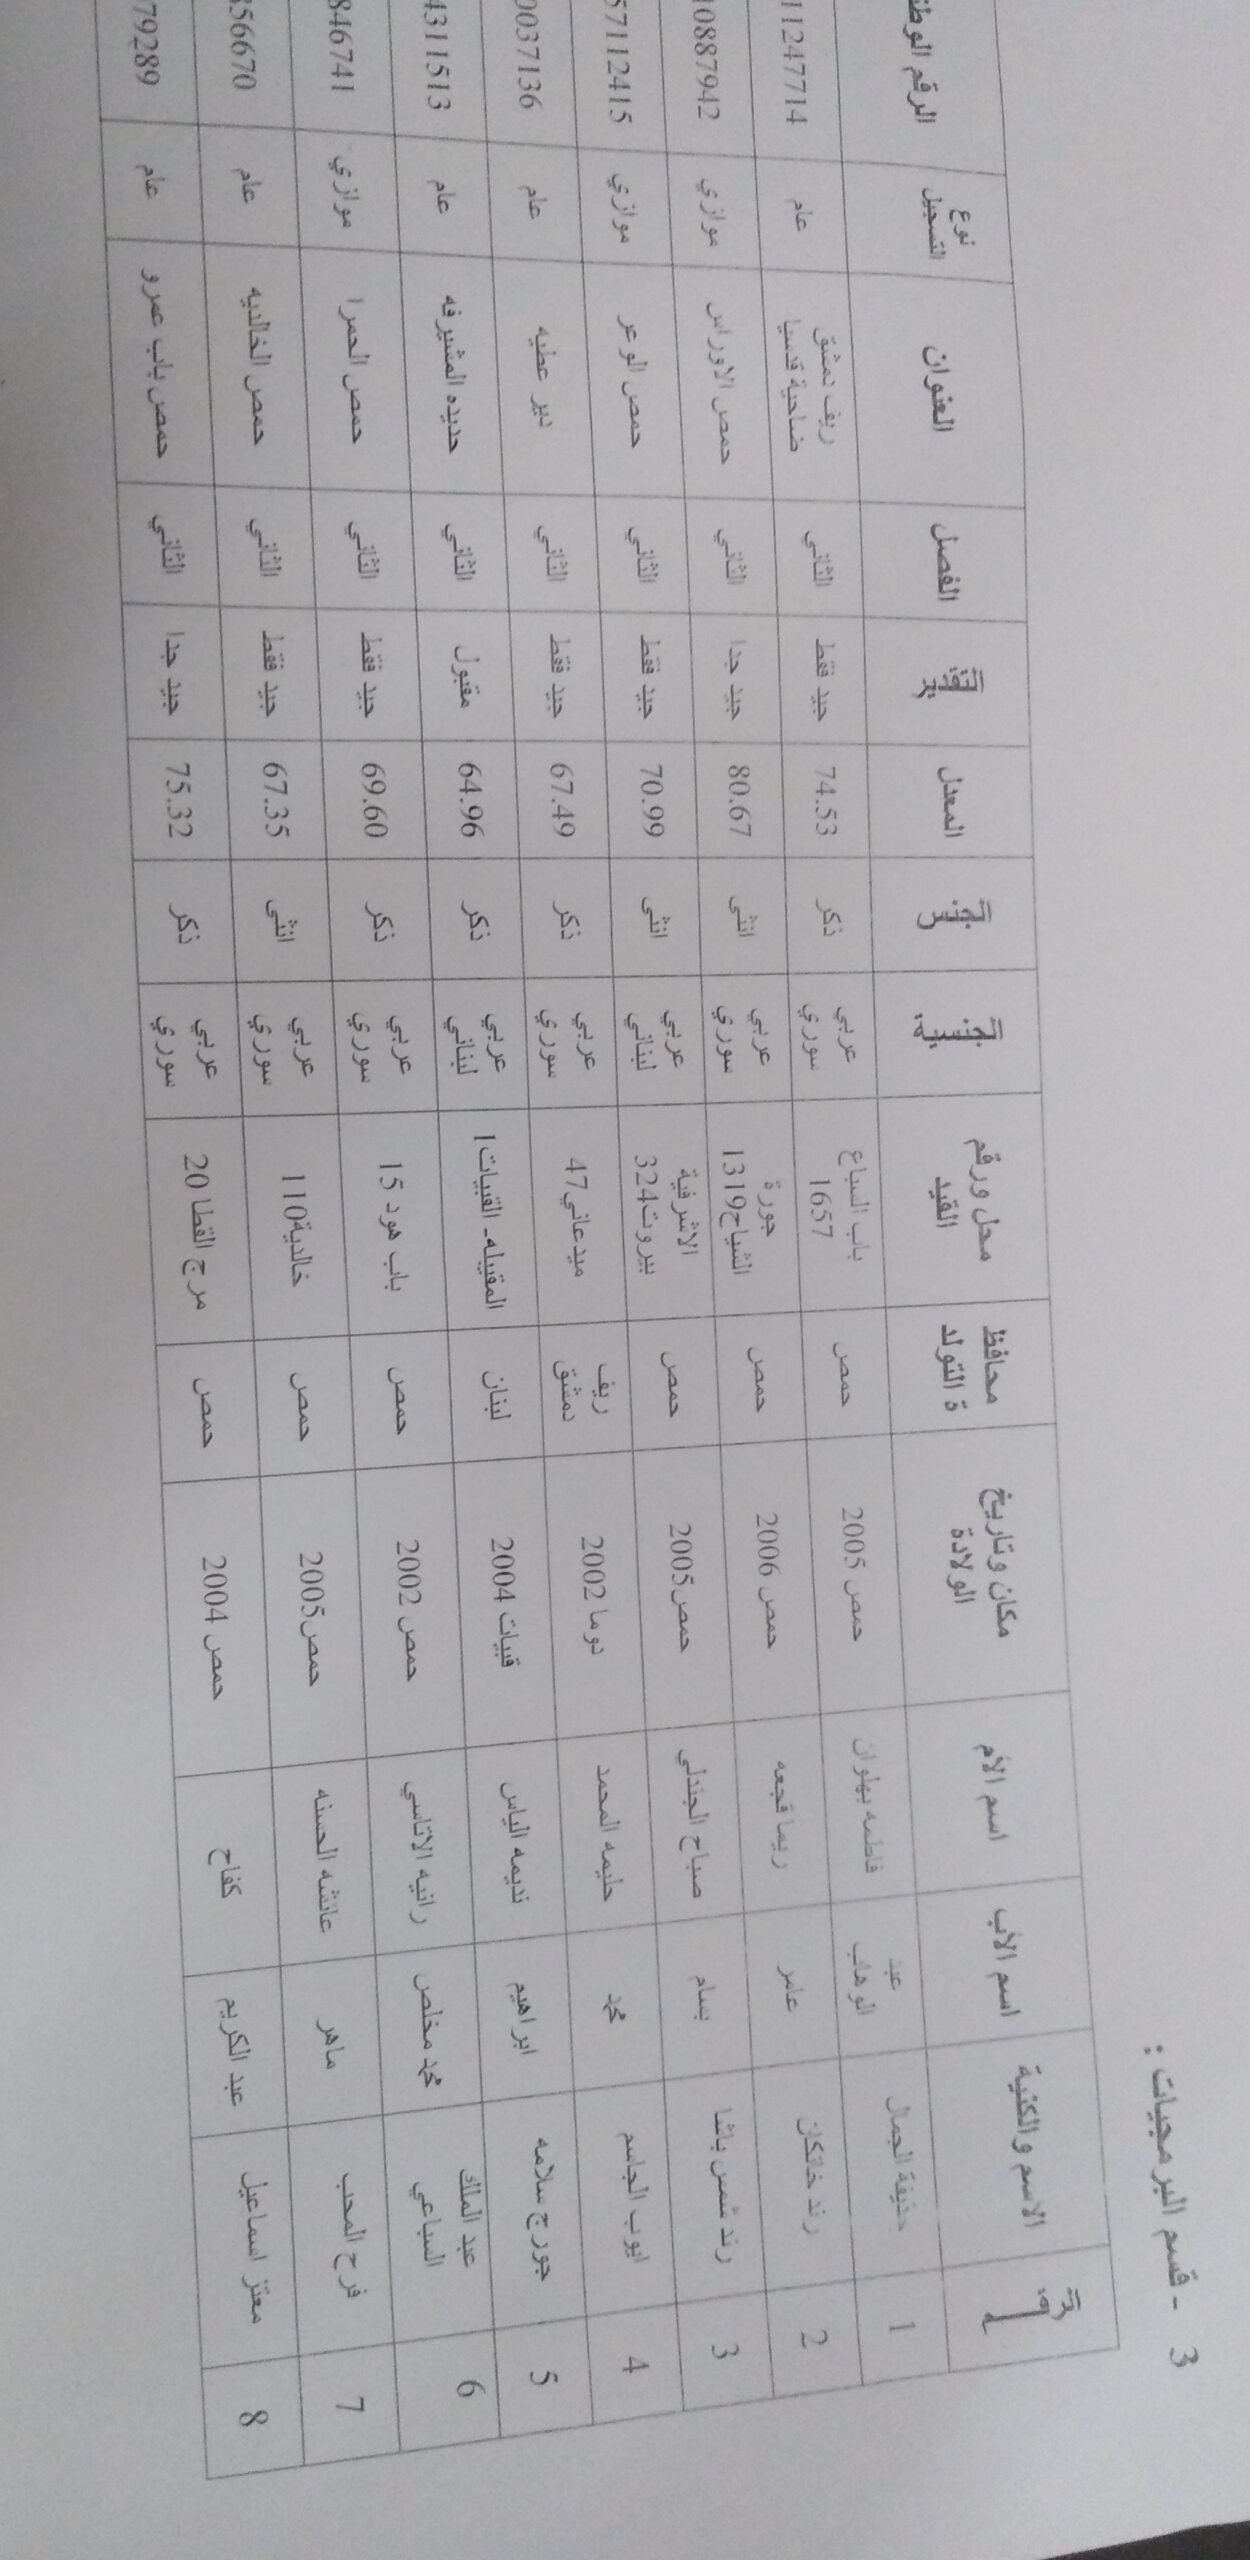 3 - قسم البرمجيات :
الرقم | الاسم والكنية | اسم الأب | اسم الأم | مكان وتاريخ الولادة | محافظة التولد | محل ورقم القيد | الجنسية | الجنس | المعدل | التقدير | الفصل | العنوان | نوع التسجيل | الرقم الوطن
1 | حنيفة الجمال | عبد الوهاب | فاطمه بهلوان | حمص 2005 | حمص | باب السباع 1657 | عربي سوري | ذكر | 74.53 | جيد فقط | الثاني | ريف دمشق ضاحية قدسيا | عام | 11247714
2 | رند خانكان | عامر | ريما قجعه | حمص 2006 | حمص | جورة الشياح1319 | عربي سوري | انثى | 80.67 | جيد جدا | الثاني | حمص الاوراس | موازي | 10887942
3 | رند شمس باشا | بسام | صباح الجندلي | حمص2005 | حمص | الاشرفية بيروت324 | عربي لبناني | انثى | 70.99 | جيد فقط | الثاني | حمص الوعر | موازي | 57112415
4 | ايوب الجاسم | محمد | حليمه المحمد | دوما 2002 | ريف دمشق | ميدعاني47 | عربي سوري | ذكر | 67.49 | جيد فقط | الثاني | دير عطيه | عام | 0037136
5 | جورج سلامه | ابراهيم | نديمه الياس | قبيات 2004 | لبنان | المقيبله- القبيات1 | عربي لبناني | ذكر | 64.96 | مقبول | الثاني | حديده المشيرفه | عام | 4311513
6 | عبد الملك السباعي | محمد مخلص | رانيه الاتاسي | حمص 2002 | حمص | باب هود 15 | عربي سوري | ذكر | 69.60 | جيد فقط | الثاني | حمص الحمرا | موازي | 846741
7 | فرح المحب | ماهر | عائشه الحسنه | حمص2005 | حمص | خالدية110 | عربي سوري | انثى | 67.35 | جيد فقط | الثاني | حمص الخالديه | عام | 356670
8 | معتز اسماعيل | عبد الكريم | كفاح | حمص 2004 | حمص | مرج القطا 20 | عربي سوري | ذكر | 75.32 | جيد جدا | الثاني | حمص باب عمرو | عام | 79289